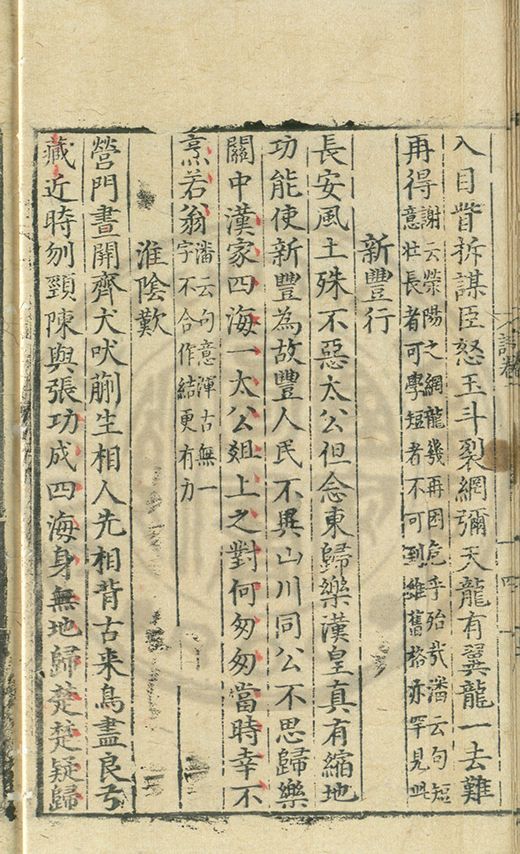 入目眥拆謀臣怒玉斗裂網彌天龍有翼龍一去難
再得
謝云滎陽之網龍幾再困危乎殆哉潘云句短
意壮長者可學短者不可到雖舊格亦罕見此
新豐行
長安風土殊不惡太公但念東歸樂漢皇真有縮地
功能使新豐為故豐人民不異山川同公不思歸樂
關中漢家四海一太公爼上之對何匆匆當時幸不
烹若翁
潘云句意渾古無一
字不合作結更有力
淮陰歎
營門晝開齊犬吠蒯生相人先相背古来鳥盡良弓
藏近時刎頸陳與張功成四海身無地歸楚楚疑歸